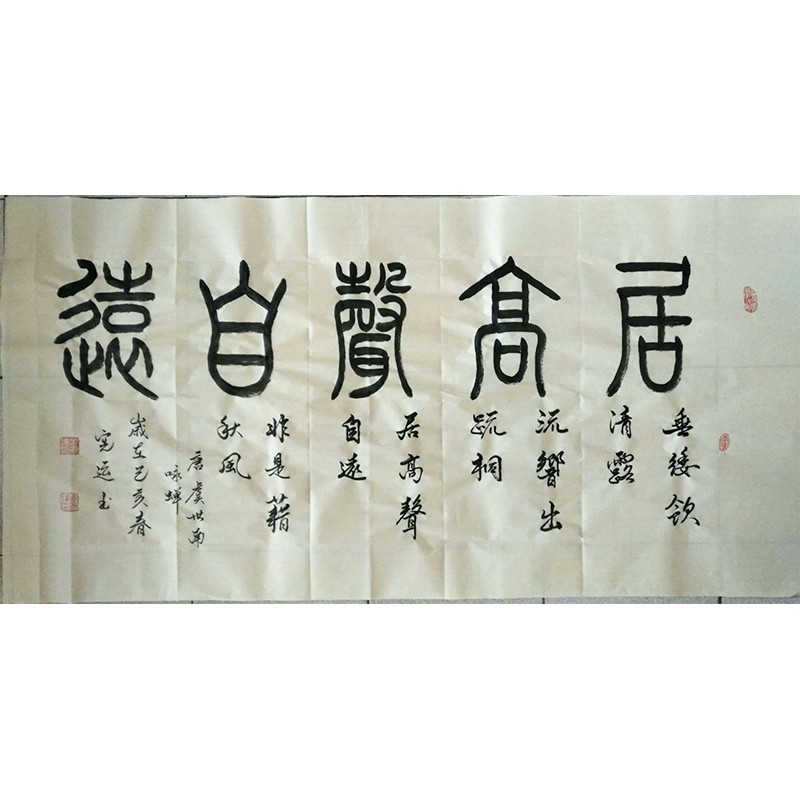 居高聲自遠
垂緌飲
清露
流響出
疏桐
居高聲
自遠
非是藉
秋風
唐虞世南
咏蟬
歲在己亥春
寬運書